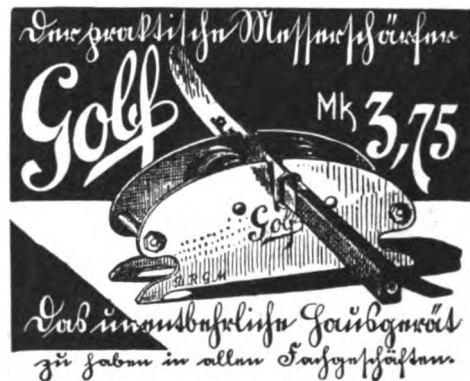 Der praktische Messerschärfer
Golf
Mk 3,75
Golf
D.R.G.M.
Das unentbehrliche Hausgerät
zu haben in allen Fachgeschäften.